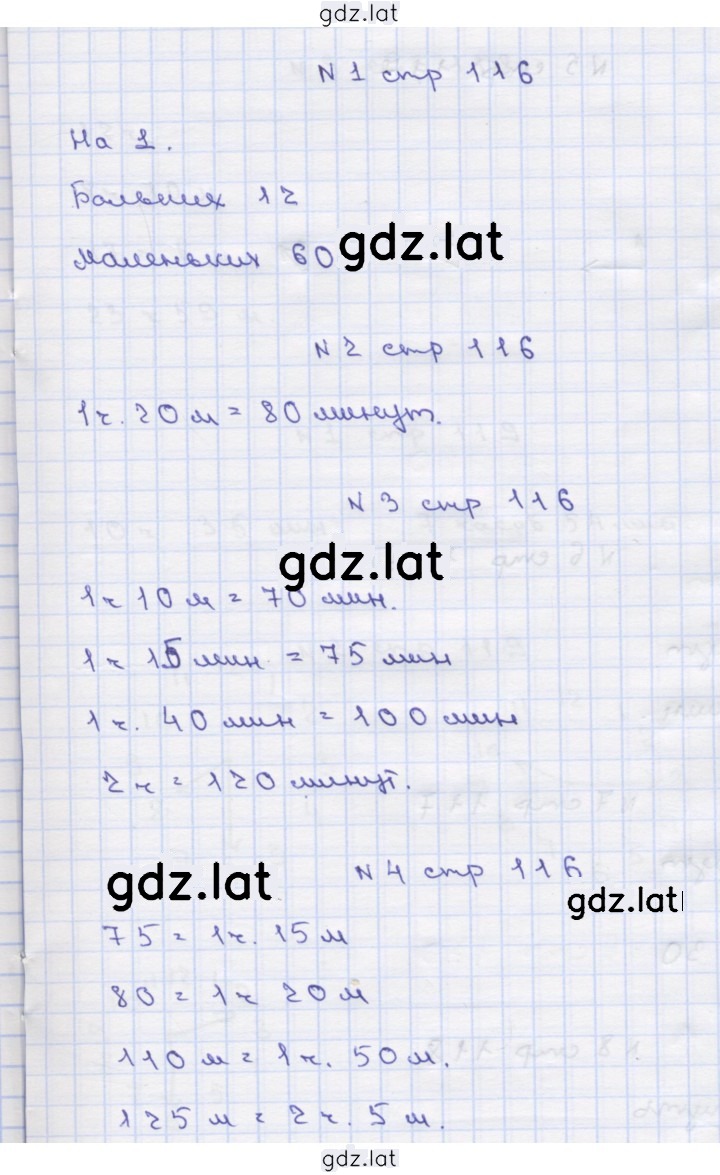 gdz.lat
N 1 стр 116
На 1.
Больших 12
маленьких 60
gdz.lat
N 2 стр 116
1ч. 20 м = 80 минут.
N 3 стр 116
gdz.lat
1ч 10 м = 70 мин.
1ч 15 мин = 75 мин
1ч. 40 мин = 100 мин
2ч = 120 минут.
gdz.lat
N 4 стр 116
gdz.lat
75 = 1ч. 15 м
80 = 1ч 20 м
110 м = 1ч. 50 м.
125 м = 2ч. 5 м.
gdz.lat